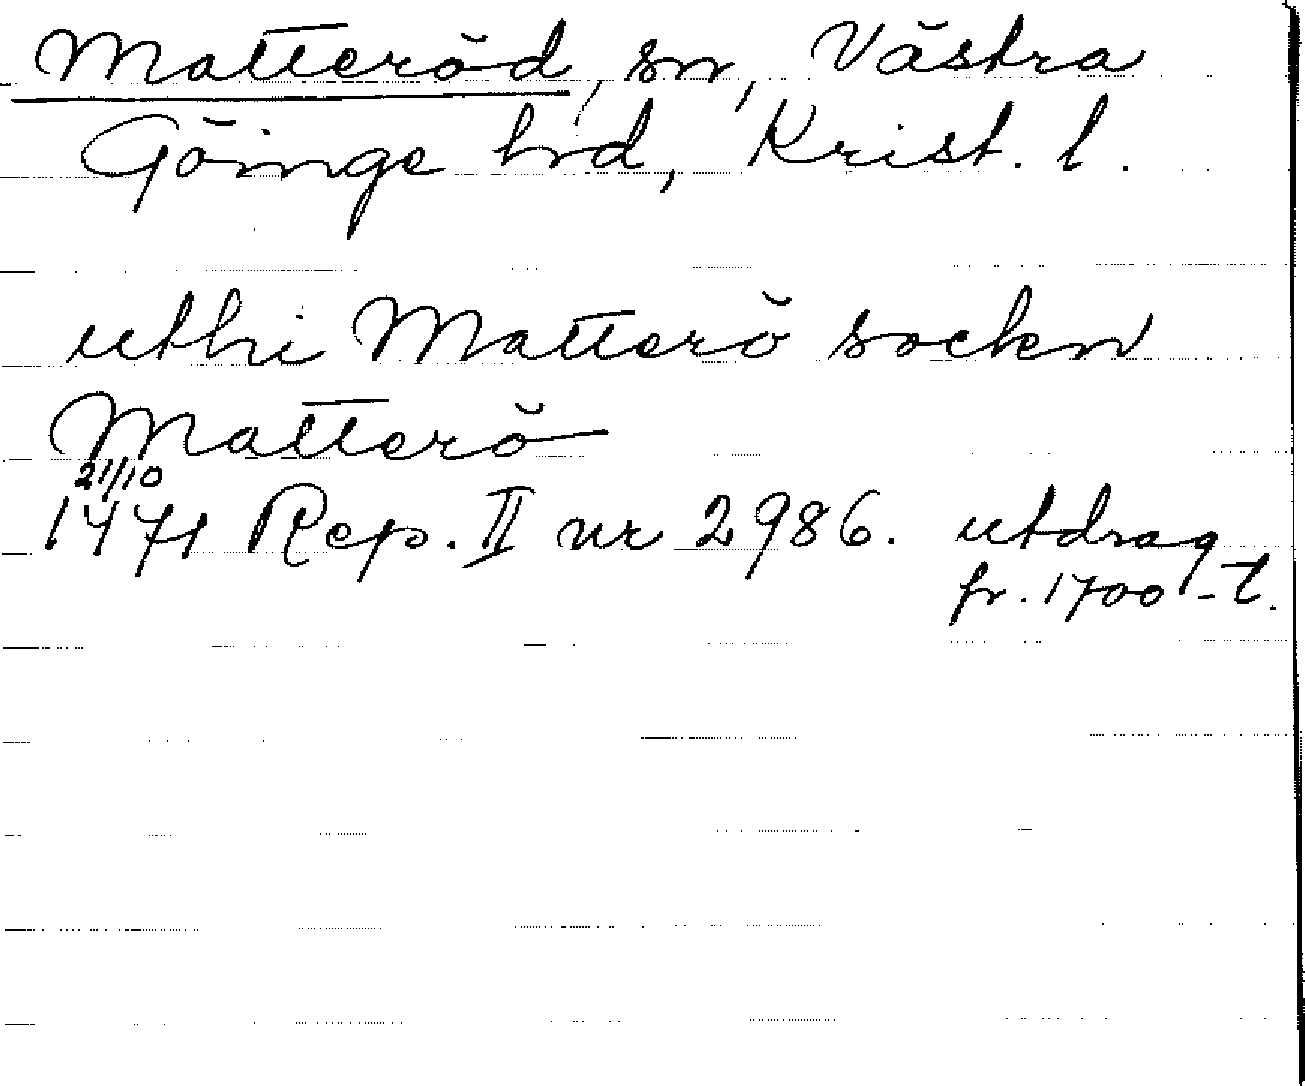 Matteröd, sn, Västra
Göinge hrd, Krist. l.
uthi Matterö sockn
Matterö
21/10
1471 Rep. II nr 2986. utdrag
fr. 1700-t.